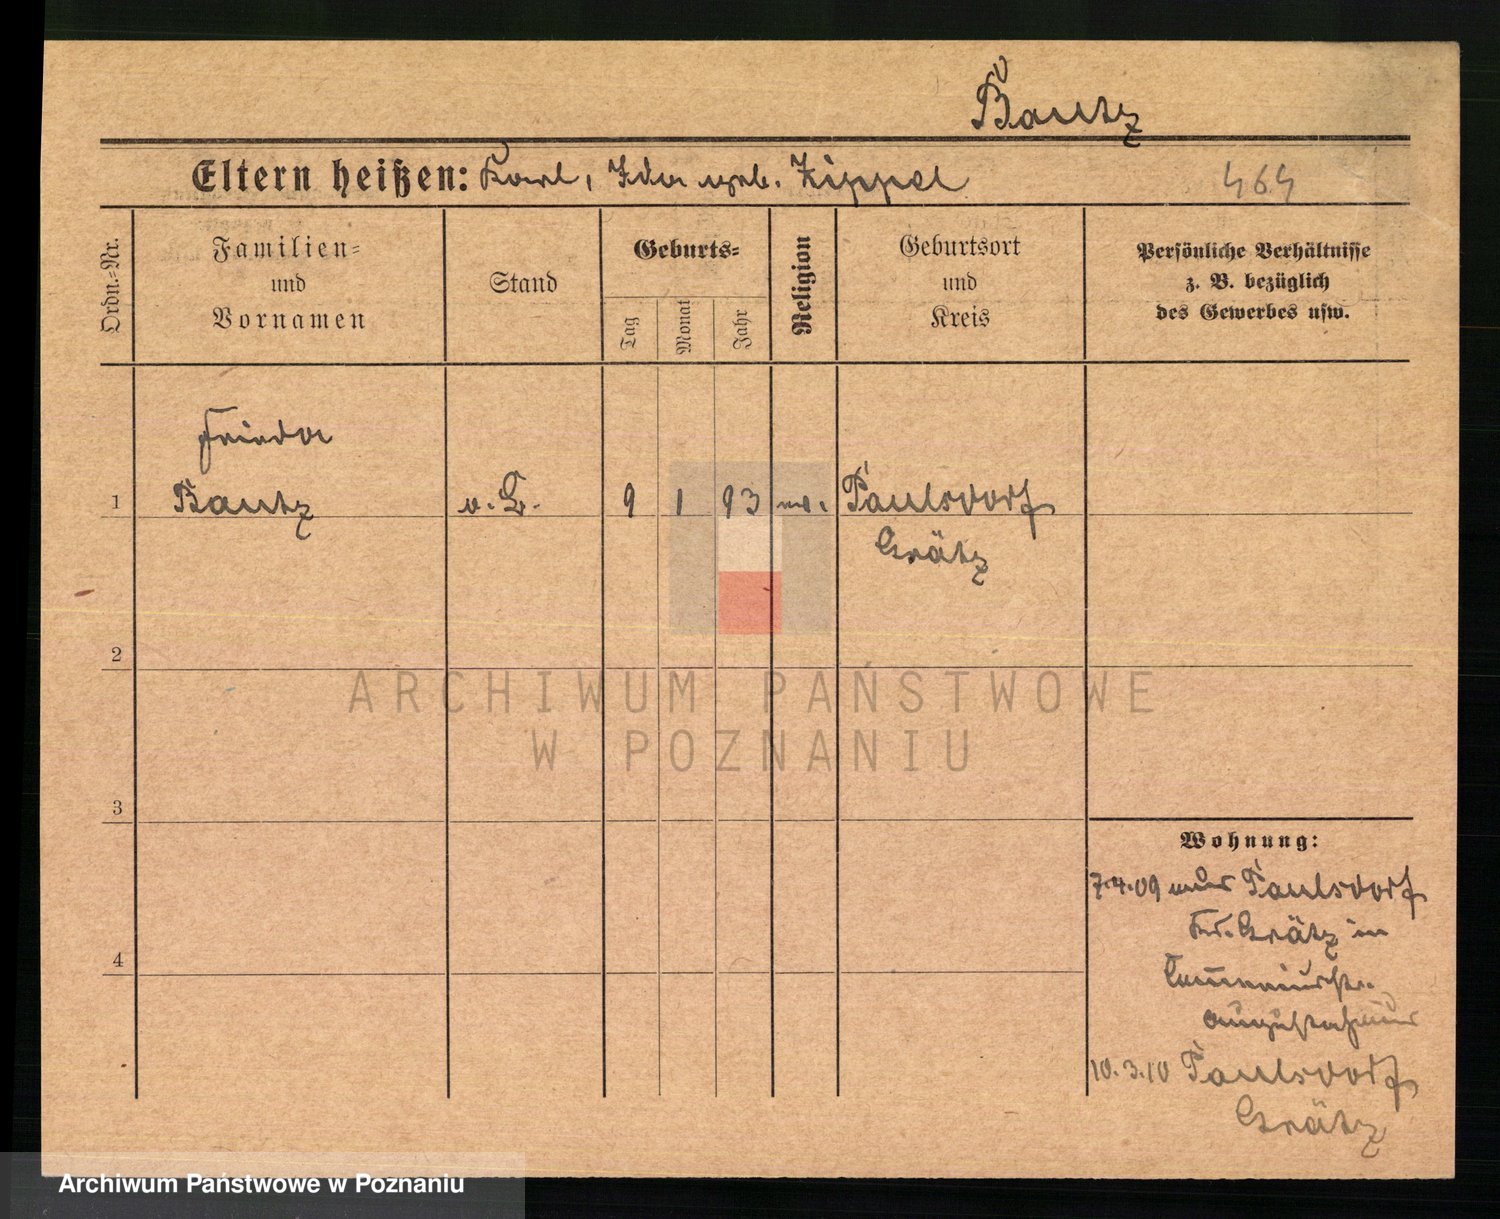 Bautz
Eltern heißen: Karl, Ida geb. Zippel 464
Ordn.=Nr.
Familien=
und
Vornamen
Stand
Geburts=
Tag
Monat
Jahr
Religion
Geburtsort
und
Kreis
Persönliche Verhältnisse
z. B. bezüglich
des Gewerbes usw.
Frieda
1 Bautz o. B. 9 1 93 ev. Paulsdorf
Grätz
2
ARCHIWUM PAŃSTWOWE
W POZNANIU
3
Wohnung:
7.4.09 aus Paulsdorf
Kr. Grätz in
4
10.3.10 Paulsdorf
Grätz
Archiwum Państwowe w Poznaniu